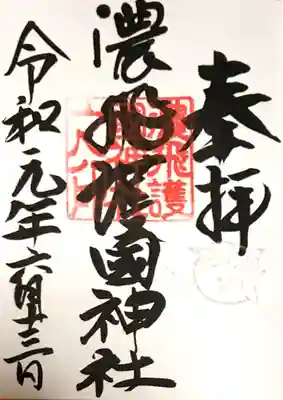 奉拝
濃飛護國神社
令和元年六月十三日